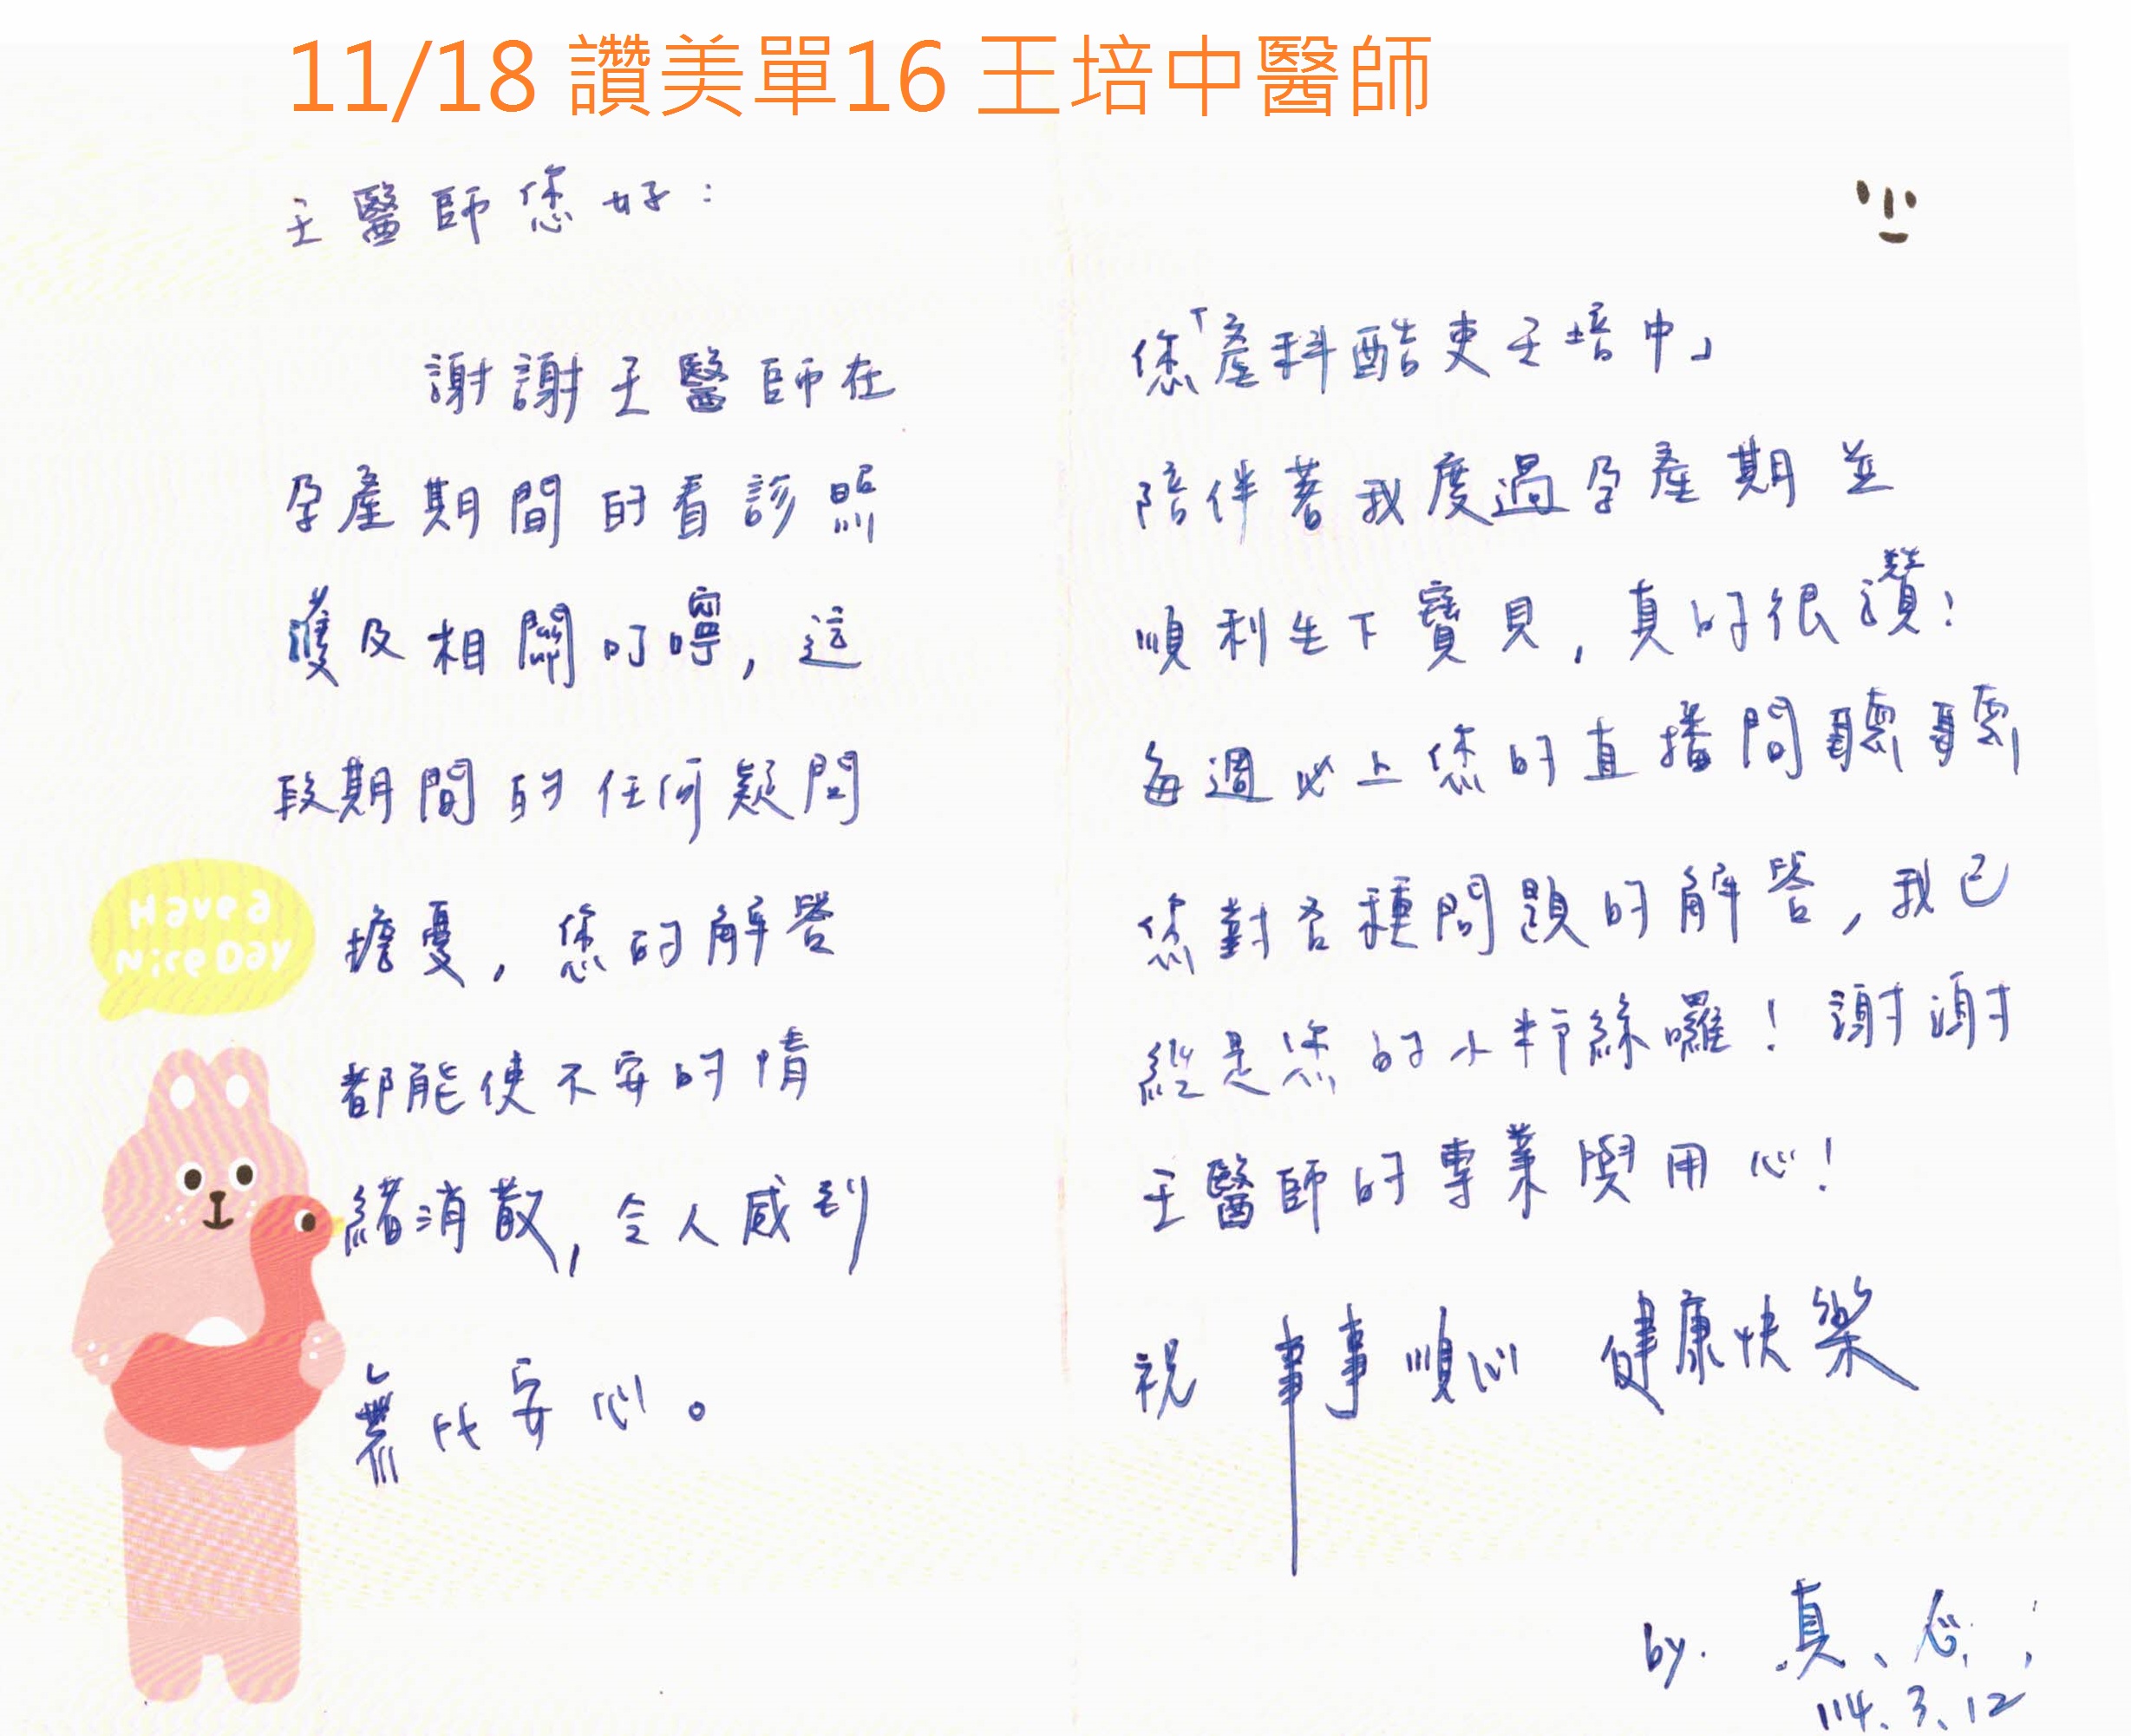 11/18 讚美單16 王培中醫師
王醫師您好：
謝謝王醫師在
孕產期間的看診照
護及相關叮嚀，這
段期間的任何疑問
擔憂，您的解答
都能使不安的情
緒消散，令人感到
無比安心。
Have a
Nice Day
您「產科酷吏王培中」
陪伴著我度過孕產期並
順利生下寶貝，真的很讚！
每週必上您的直播間聽聽
您對各種問題的解答，我已
經是您的小粉絲囉！謝謝
王醫師的專業與用心！
祝 事事順心 健康快樂
by. 真、心
114.3.12